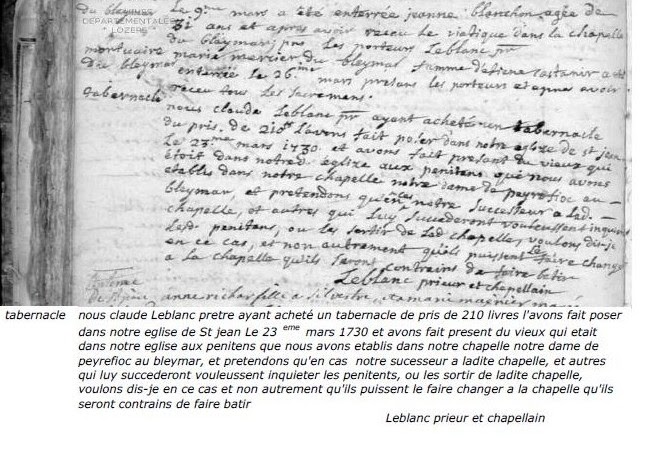 ARCHIVES
DEPARTEMENTALES
LOZERE
du bleymar le 9me mars a été enterrée jeanne blanchon agée de
31 ans et apres avoir receu le viatique dans la chapelle
du bleymar, pns les porteurs Leblanc pr
mortuaire marie mercier du bleymar famme d'etiene castanier a été
du bleymar enterrée le 26me mars presans les porteurs et apres avoir
receu tous les sacremens.
tabernacle nous claude Leblanc pr ayant acheté un tabernacle
du pris de 210lt Lavons fait poser dans notre eglise de st jean
Le 23me mars 1730 et avons fait presant du vieux qui
étoit dans notred. eglize aux penitens que nous avons
etablis dans notre chapelle notre dame de peyrefioc au
bleymar, et pretendons qu'en cas notre successeur a Lad.
chapelle, et autres qui Luy succederont vouleussent inquieter
Lesd. penitans, ou les sortir de Lad chapelle, voulons dis-je
en ce cas, et non autrement qu'ils puissent le faire changer
a la chapelle qu'ils seront contrains de faire batir
Leblanc prieur et chapellain
anne richard fille a silvestre,
tabernacle nous claude Leblanc pretre ayant acheté un tabernacle de pris de 210 livres l'avons fait poser
dans notre eglise de St jean Le 23 eme mars 1730 et avons fait present du vieux qui etait
dans notre eglise aux penitens que nous avons etablis dans notre chapelle notre dame de
peyrefioc au bleymar, et pretendons qu'en cas notre sucesseur a ladite chapelle, et autres
qui luy succederont vouleussent inquieter les penitents, ou les sortir de ladite chapelle,
voulons dis-je en ce cas et non autrement qu'ils puissent le faire changer a la chapelle qu'ils
seront contrains de faire batir
Leblanc prieur et chapellain